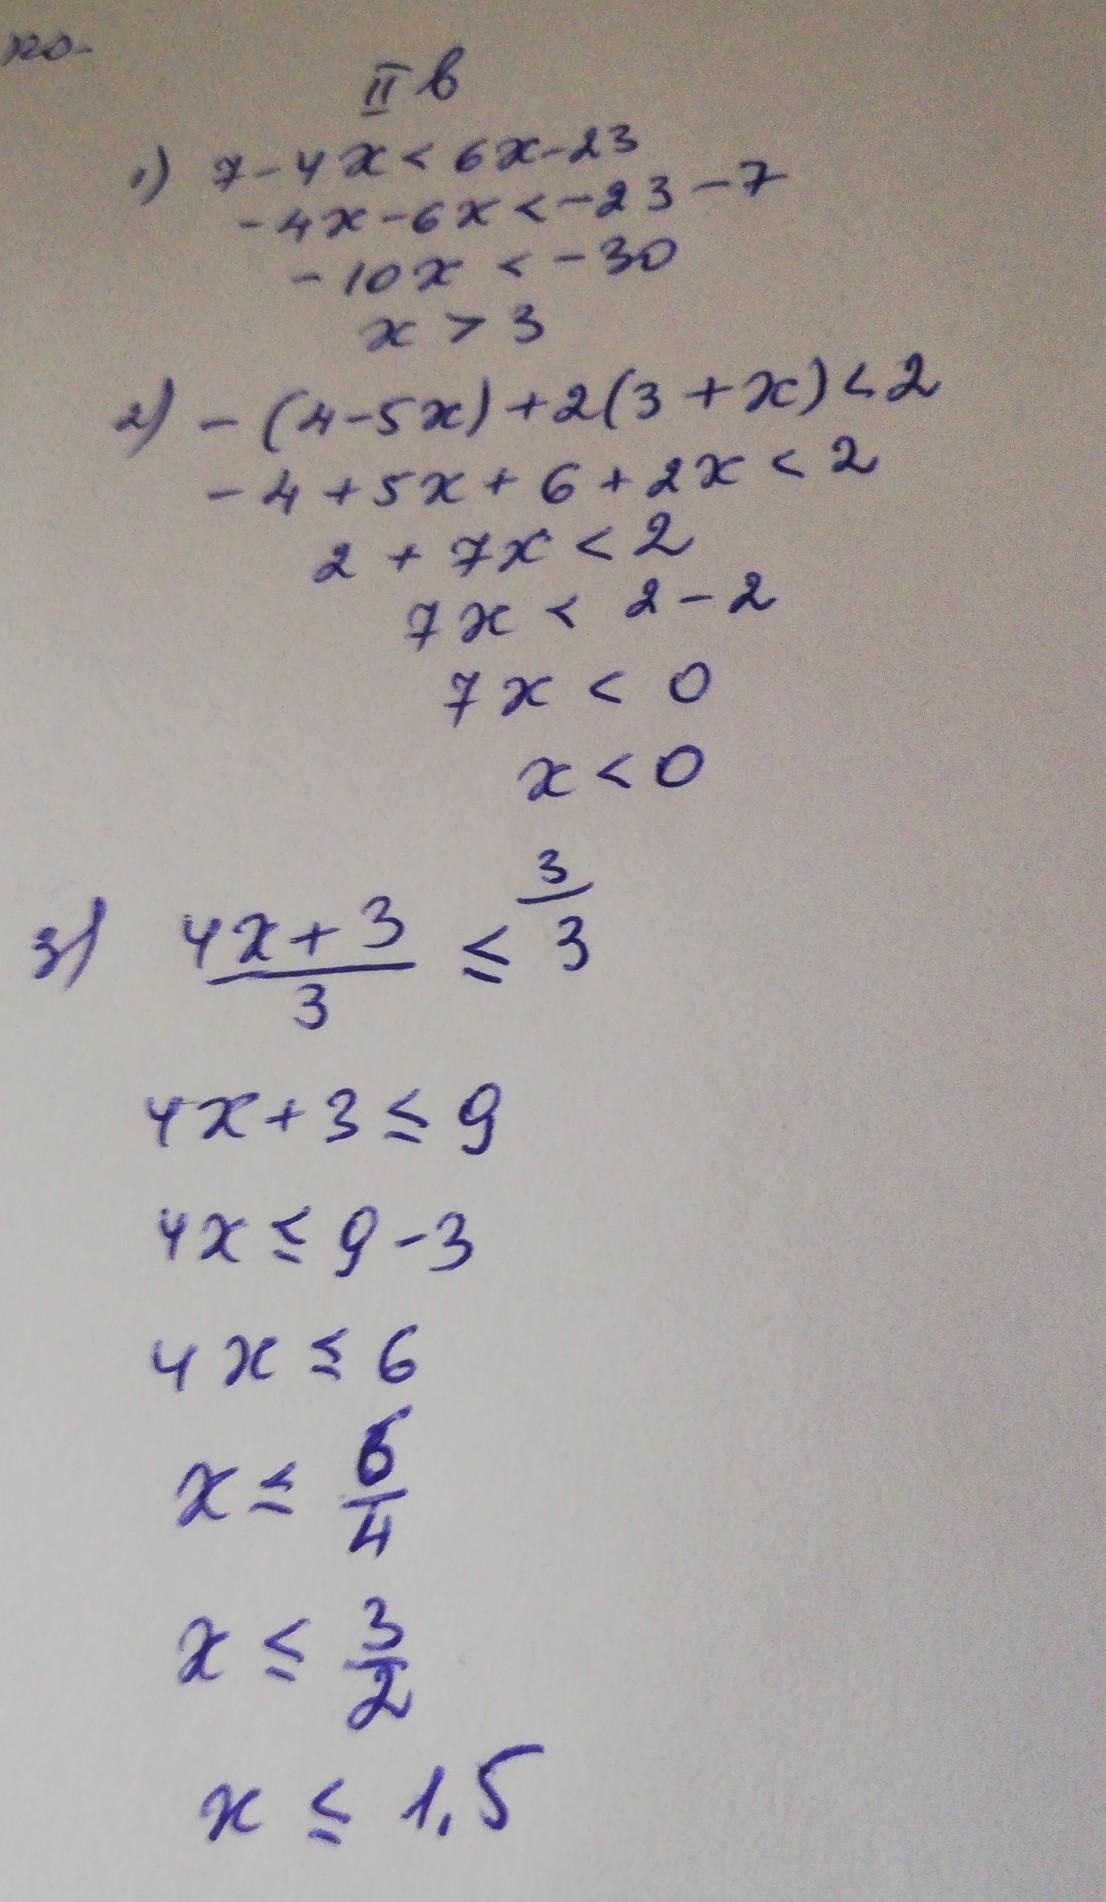 II в
1) 7-4x<6x-23
-4x-6x<-23-7
-10x < -30
x > 3
2) -(4-5x)+2(3+x)<2
-4+5x+6+2x<2
2+7x<2
7x < 2-2
7x < 0
x<0
3) (4x+3)/3 ≤ 3/3
4x+3≤9
4x≤9-3
4x≤6
x≤6/4
x≤3/2
x≤1,5